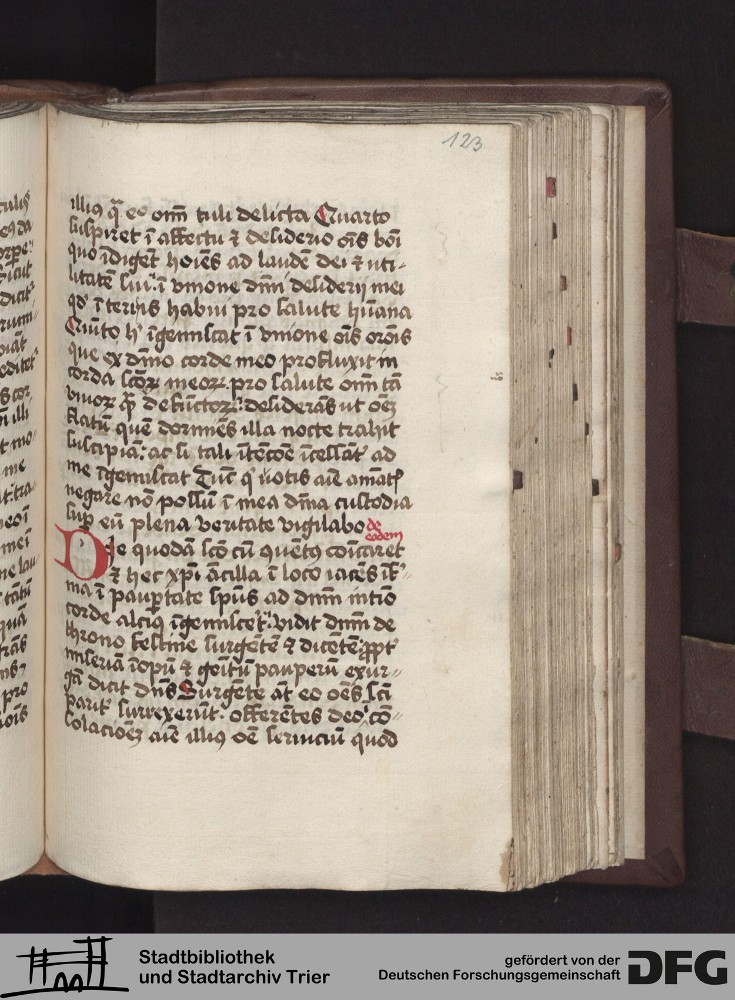 123
illiꝰ q̃ eo om̅ tuli delicta Quarto
suspiret ī affectu ⁊ desiderio oīs boi
quo īdiget hoiēs ad laudē dei ⁊ uti-
litatē sui. ī vnione dn̄i desiderij mei
qd̓ ī terris habui pro salute hūana
Quīto h' īgemiscat ī vnione oīs oroīs
que ex dīno corde meo profluxit in
corda sc̄oꝝ meoꝝ pro salute om̅ tā
viuoꝝ q̃ defūctoꝝ. desiderās ut oēꝫ
flatū quē dormiēs illa nocte trahit
suscipiā. ac si tali ītētōe īcessāt' ad
me īgemiscat Tūc q' uotis aīe amātꝭ
negare nō possū ī mea dīna custodia
sup eū plena veritate vigilabo de
eadem
De quodā fc̄o cū quēꝰ coīcaret
⁊ hec xp̄i ācilla ī loco iacēs īf'-
ma ī paup̱tate sp̄us ad dn̄m intīo
corde alciꝰ īgemisce't. vidit dn̄m de
throno festine surgētē ⁊ dicētē. ꝓpt'
miseriā īopū ⁊ gēitū pauperū exur-
gā dicit dn̄s Surgēte āt eo oēs sc̄i
parit' surrexerūt. offerētes deo ī cō-
solacioēꝫ aīe illiꝰ oē seruiciū quod
Stadtbibliothek
und Stadtarchiv Trier
gefördert von der
Deutschen Forschungsgemeinschaft
DFG